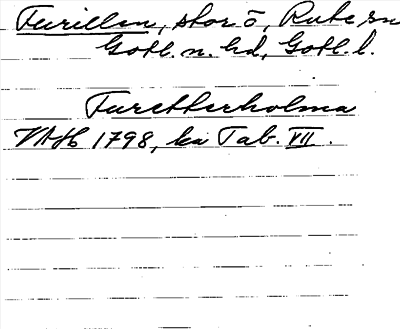 Furillen, stor ö, Rute sn
Gotl. n. hd, Gotl. l.
Furetterholma
VAH 1798, ka Tab. VII.